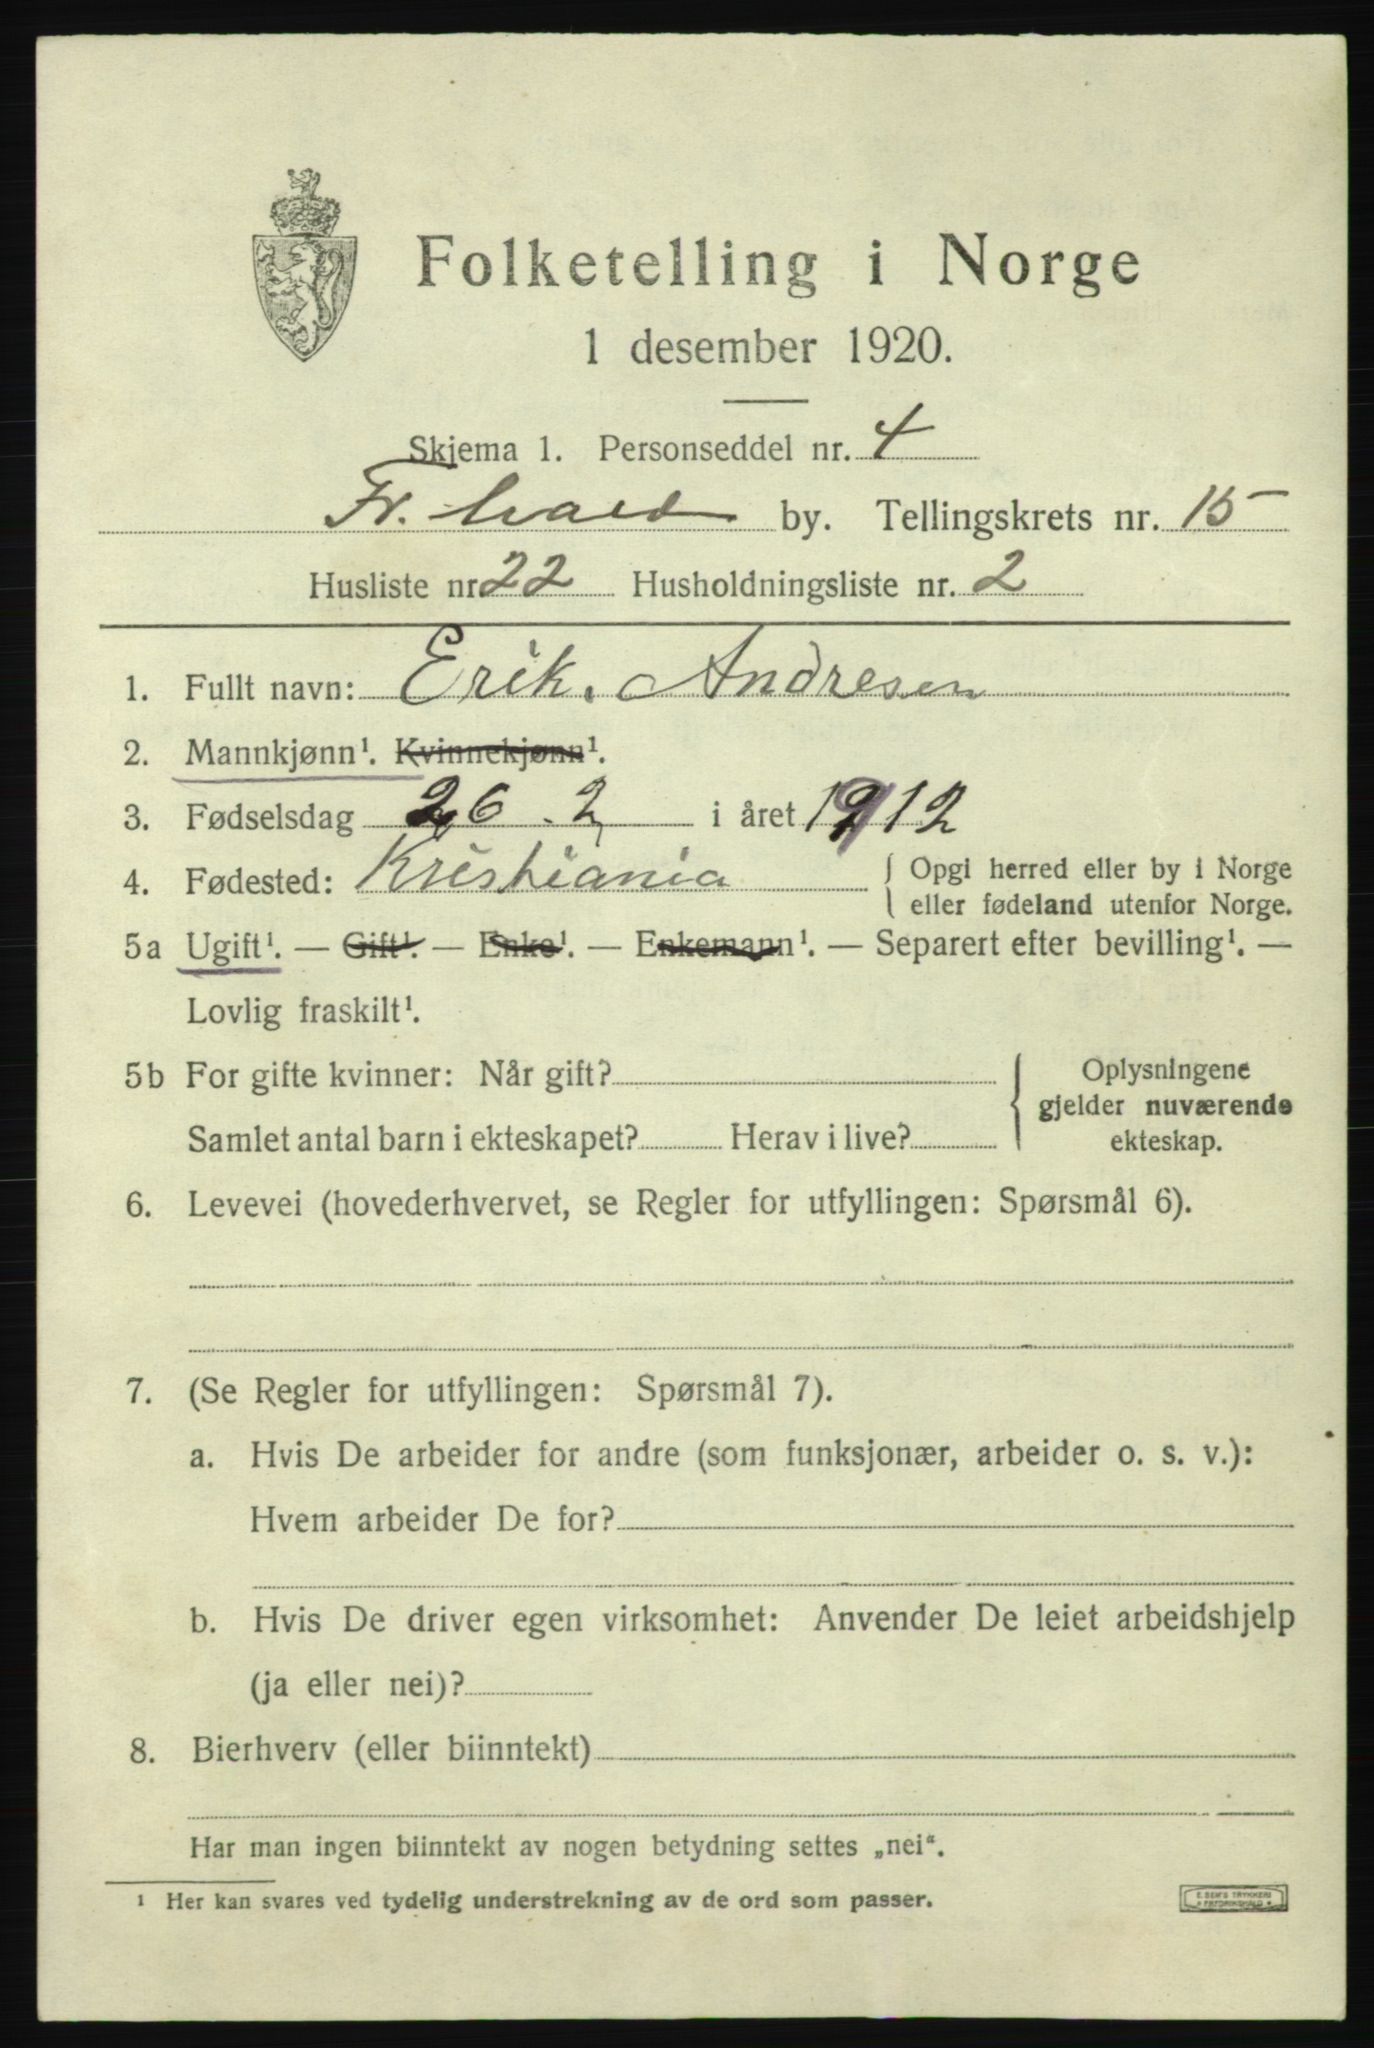 Folketelling i Norge
1 desember 1920.
Skjema 1. Personseddel nr. 4
Fr. hald by. Tellingskrets nr. 15
Husliste nr. 22 Husholdningsliste nr. 2
1. Fullt navn: Erik. Andresen
2. Mannkjønn¹. Kvinnekjønn¹.
3. Fødselsdag 26. 2 i året 1912
4. Fødested: Kristiania { Opgi herred eller by i Norge
eller fødeland utenfor Norge.
5a Ugift¹. — Gift¹. — Enke¹. — Enkemann¹. — Separert efter bevilling¹. —
Lovlig fraskilt¹.
5b For gifte kvinner: Når gift?
Samlet antal barn i ekteskapet? Herav i live?
Oplysningene
gjelder nuværende
ekteskap.
6. Levevei (hovederhvervet, se Regler for utfyllingen: Spørsmål 6).
7. (Se Regler for utfyllingen: Spørsmål 7).
a. Hvis De arbeider for andre (som funksjonær, arbeider o. s. v.):
Hvem arbeider De for?
b. Hvis De driver egen virksomhet: Anvender De leiet arbeidshjelp
(ja eller nei)?
8. Bierhverv (eller biinntekt)
Har man ingen biinntekt av nogen betydning settes „nei“.
¹ Her kan svares ved tydelig understrekning av de ord som passer.
E. SEM'S TRYKKERI
FREDRIKSHALD